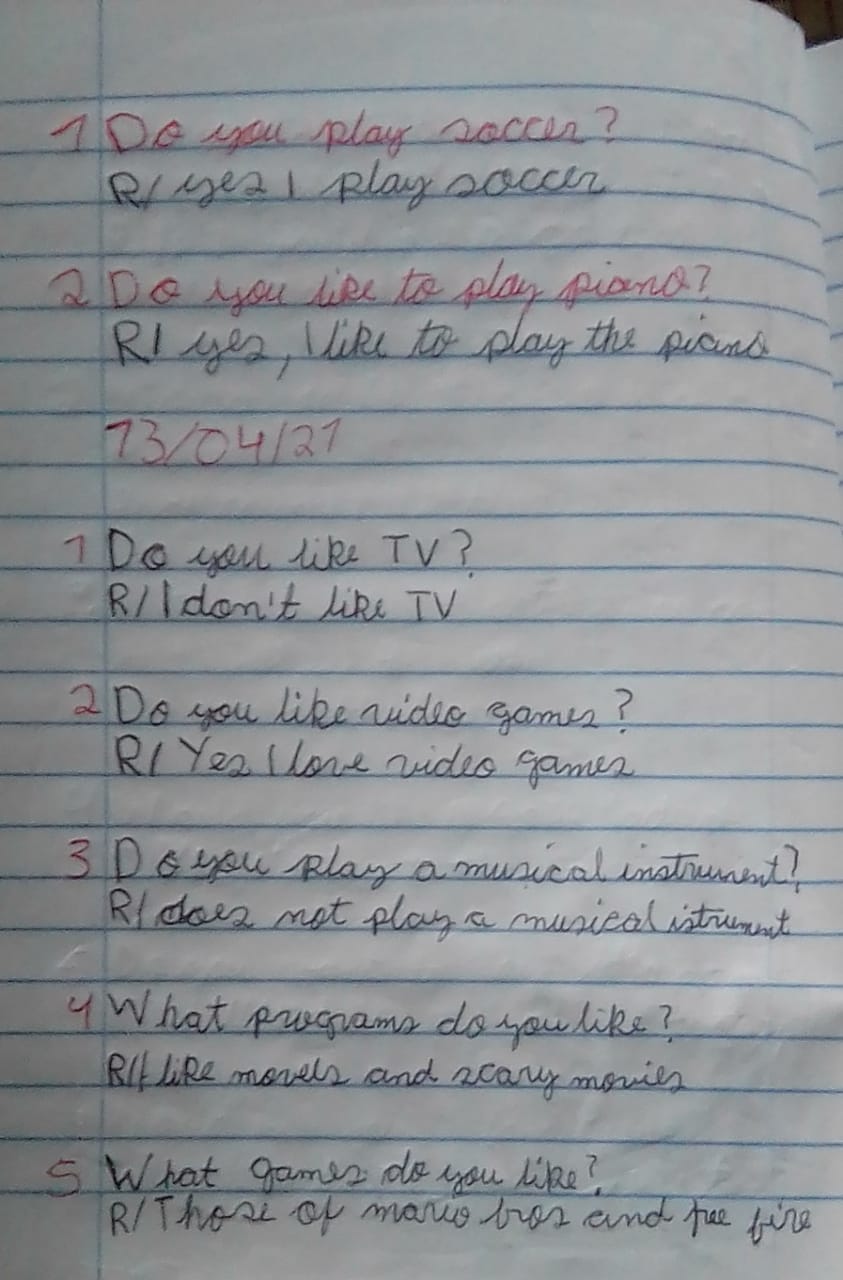 1 Do you play soccer?
R/ yes I play soccer
2 Do you like to play piano?
R/ yes, I like to play the piano
13/04/21
1 Do you like TV?
R/ I don't like TV
2 Do you like video games?
R/ Yes I love video games
3 Do you play a musical instrument?
R/ does not play a musical istrument
4 What programs do you like?
R/I like novels and scary movies
5 What games do you like?
R/ Those of mario bros and free fire